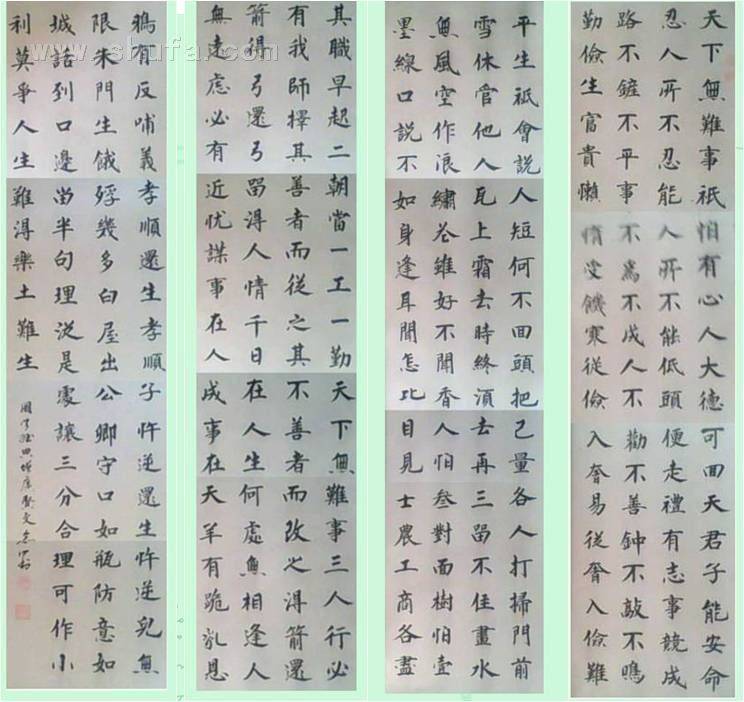 天下無難事祇怕有心人大德可回天君子能安命
忍人所不忍能人所不能低頭便走禮有志事競成
路不鏟不平事不為不成人不勸不善鐘不敲不鳴
勤儉生富貴懶惰受饑寒從儉入奢易從奢入儉難
平生祇會說人短何不回頭把己量各人打掃門前
雪休管他人瓦上霜去時終須去再三留不住畫水
無風空作浪繡花雖好不聞香人怕叁對面樹怕壹
墨線口說不如身逢耳聞怎比目見士農工商各盡
其職早起二朝當一工一勤天下無難事三人行必
有我師擇其善者而從之其不善者而改之得箭還
箭得弓還弓留得人情千日在人生何處無相逢人
無遠慮必有近忧謀事在人成事在天羊有跪乳恩
鴉有反哺義孝順還生孝順子忤逆還生忤逆兒無
限朱門生餓殍幾多白屋出公卿守口如瓶防意如
城話到口邊留半句理從是處讓三分合理可作小
利莫爭人生難得樂土難生
增廣賢文
www.shufa.com